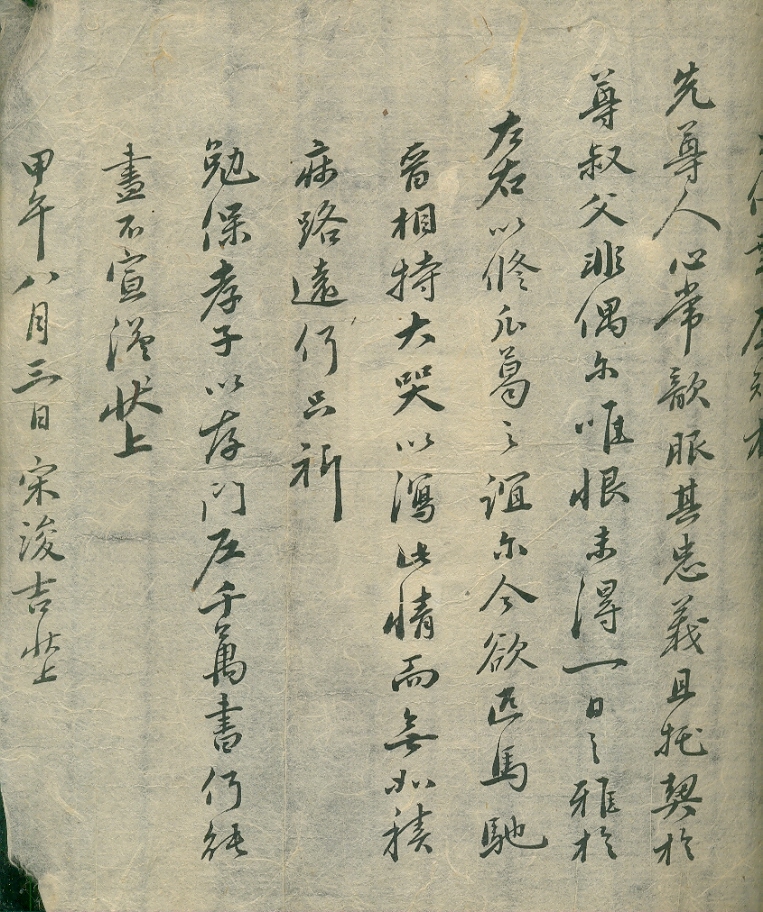 先尊人心常歆服其忠義且托契於
尊叔父非偶尓唯恨未得一日之雅於
左右以修瓜葛之誼尓今欲匹馬馳
晉相持大哭以瀉此情而無如積
病路遠何只祈
勉保孝子以存門戶千萬書何能
盡不宣謹狀上
甲午八月三日宋浚吉狀上